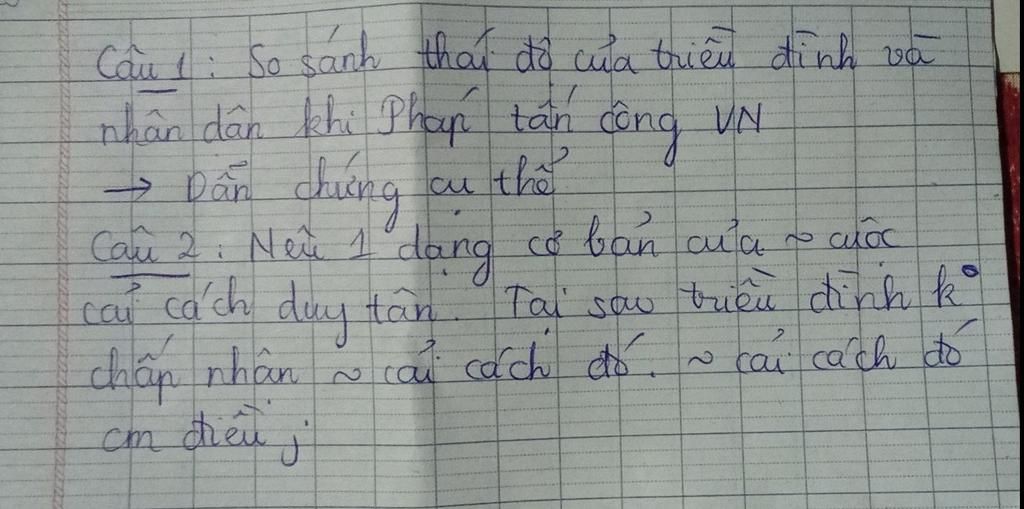 Câu 1: So sánh thái độ của triều đình và
nhân dân khi Pháp tấn công VN
→ Dẫn chứng cụ thể
Câu 2: Nêu 1 dạng cơ bản của ~ cuộc
cải cách duy tân. Tại sao triều đình k°
chấp nhận ~ cải cách đó. ~ cải cách đó
cm điều j